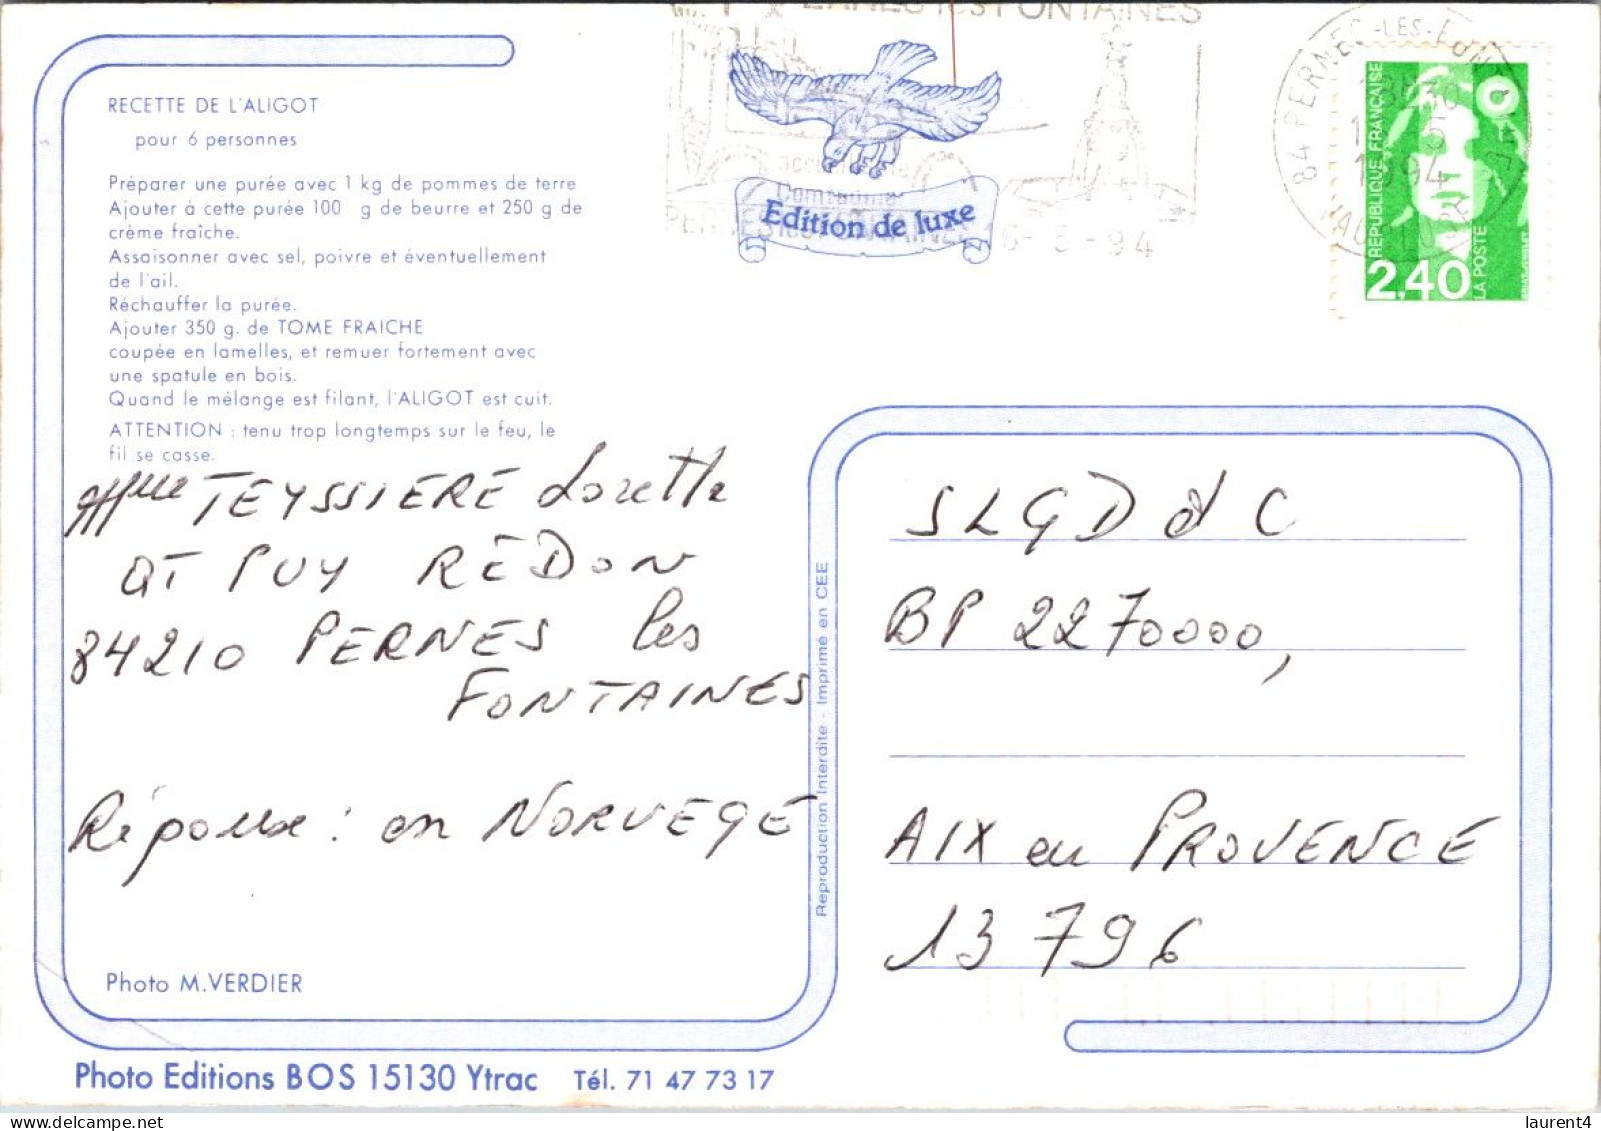 RECETTE DE L'ALIGOT
pour 6 personnes
Préparer une purée avec 1 kg de pommes de terre
Ajouter à cette purée 100 g de beurre et 250 g de
crème fraîche.
Assaisonner avec sel, poivre et éventuellement
de l'ail.
Réchauffer la purée.
Ajouter 350 g. de TOME FRAICHE
coupée en lamelles, et remuer fortement avec
une spatule en bois.
Quand le mélange est filant, l'ALIGOT est cuit.
ATTENTION : tenu trop longtemps sur le feu, le
fil se casse.
TEYSSIERE Loretta
QT PUY REDON
84210 PERNES les
FONTAINES
Réponse : en NORVEGE
Photo M.VERDIER
Photo Editions BOS 15130 Ytrac Tél. 71 47 73 17
Reproduction Interdite - Imprimé en CEE
Edition de luxe
PERNES les FONTAINES
5-94
84 PERNES-LES-FONTAINES
VAUCLUSE
1994
REPUBLIQUE FRANÇAISE
2,40
LA POSTE
SLGD et C
BP 2270000,
AIX en PROVENCE
13 796
laurent4